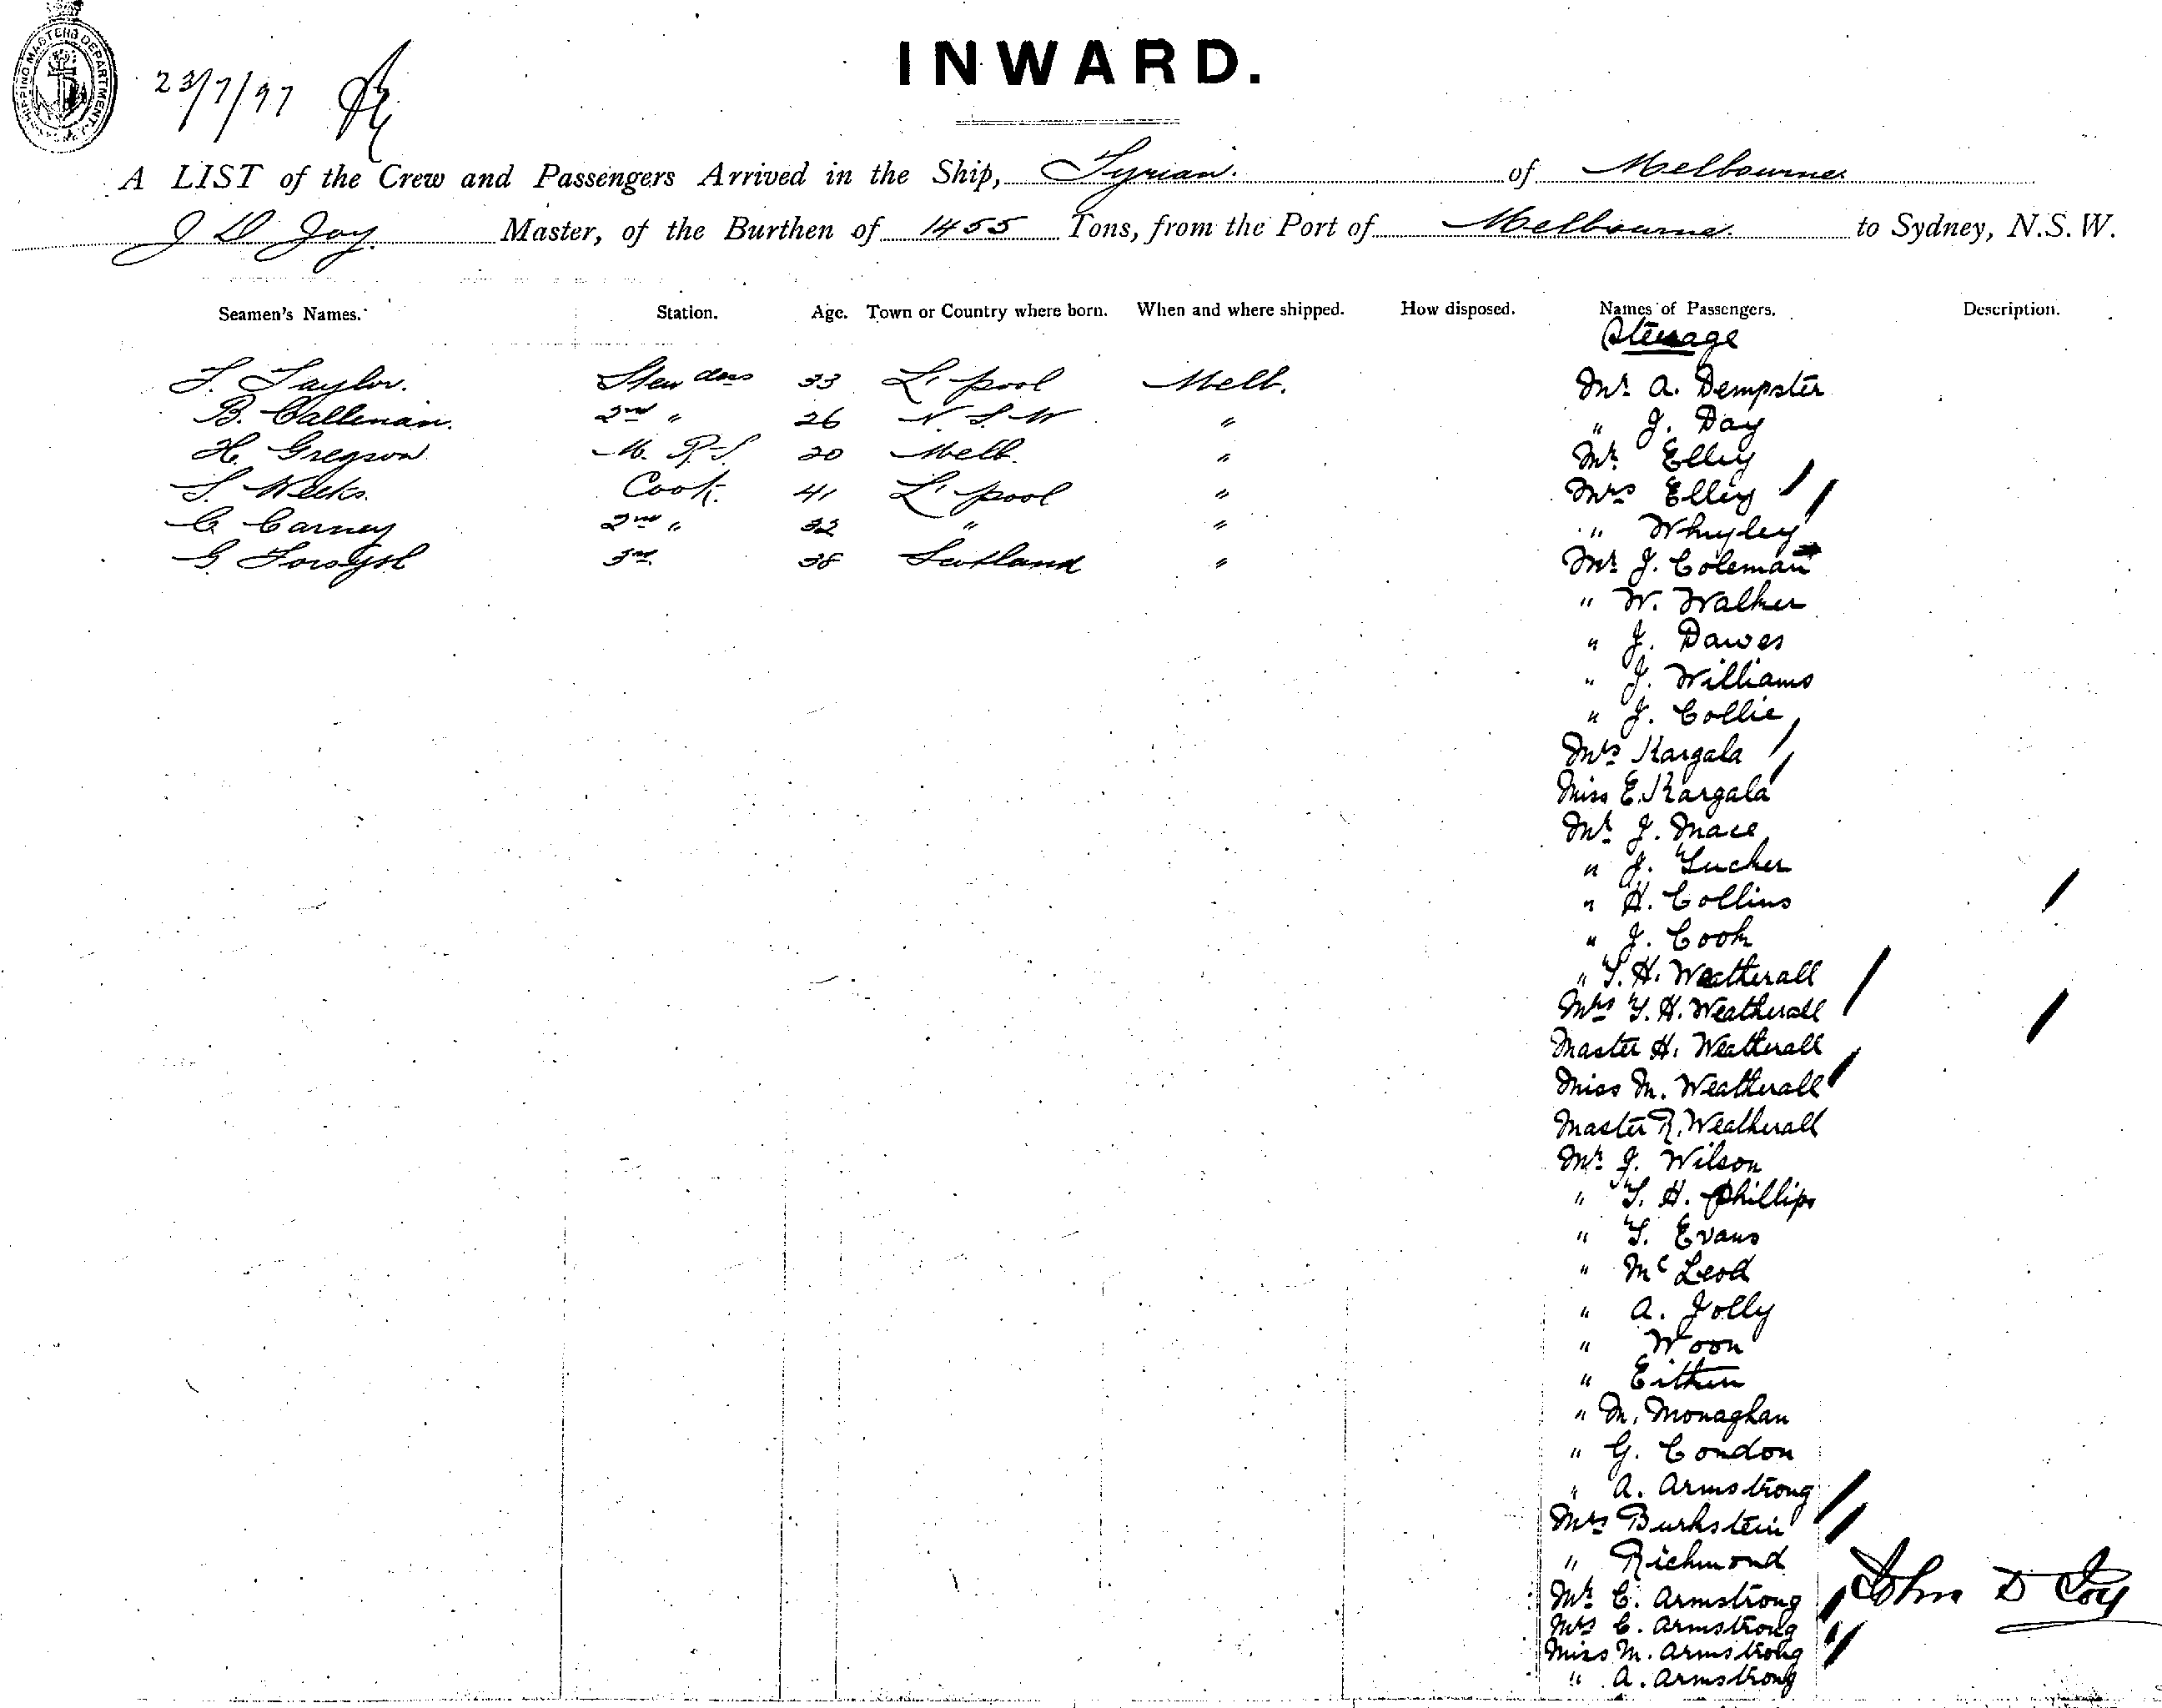 SHIPPING MASTERS DEPARTMENT
23/7/97
INWARD.
A LIST of the Crew and Passengers Arrived in the Ship, Tyrian. of Melbourne
J D Joy. Master, of the Burthen of 1455 Tons, from the Port of Melbourne. to Sydney, N.S.W.
Seamen's Names. Station. Age. Town or Country where born. When and where shipped. How disposed. Names of Passengers. Description.
Steerage
T. Taylor. Stewdess 33 L'pool Melb. Mr A. Dempster
B. Callenan. 2nd " 26 N.S.W " " J. Day
H. Gregson. M. R. S. 20 Melb. " Mr Elley
S. Weeks. Cook. 41 L'pool " Mrs Elley
C Carney 2nd " 32 " " " Whyley
G. Forsyth 3rd. 38 Scotland " Mr J. Coleman
" W. Walker
" J. Dawes
" J. Williams
" J. Collie
Mrs Kargala
Miss E. Kargala
Mr J. Mace
" J. Tucker
" H. Collins
" J. Cook
" T. H. Weatherall
Mrs T. H. Weatherall
Master H. Weatherall
Miss M. Weatherall
Master R. Weatherall
Mr J. Wilson
" T. H. Phillips
" T. Evans
" Mc Leod
" A. Jolly
" Woon
" Eithen
" M. Monaghan
" G. Condon
" A. Armstrong
Mrs Burkstein
" Richmond
Mr C. Armstrong John D Joy
Mrs C. Armstrong
Miss M. Armstrong
" A. Armstrong